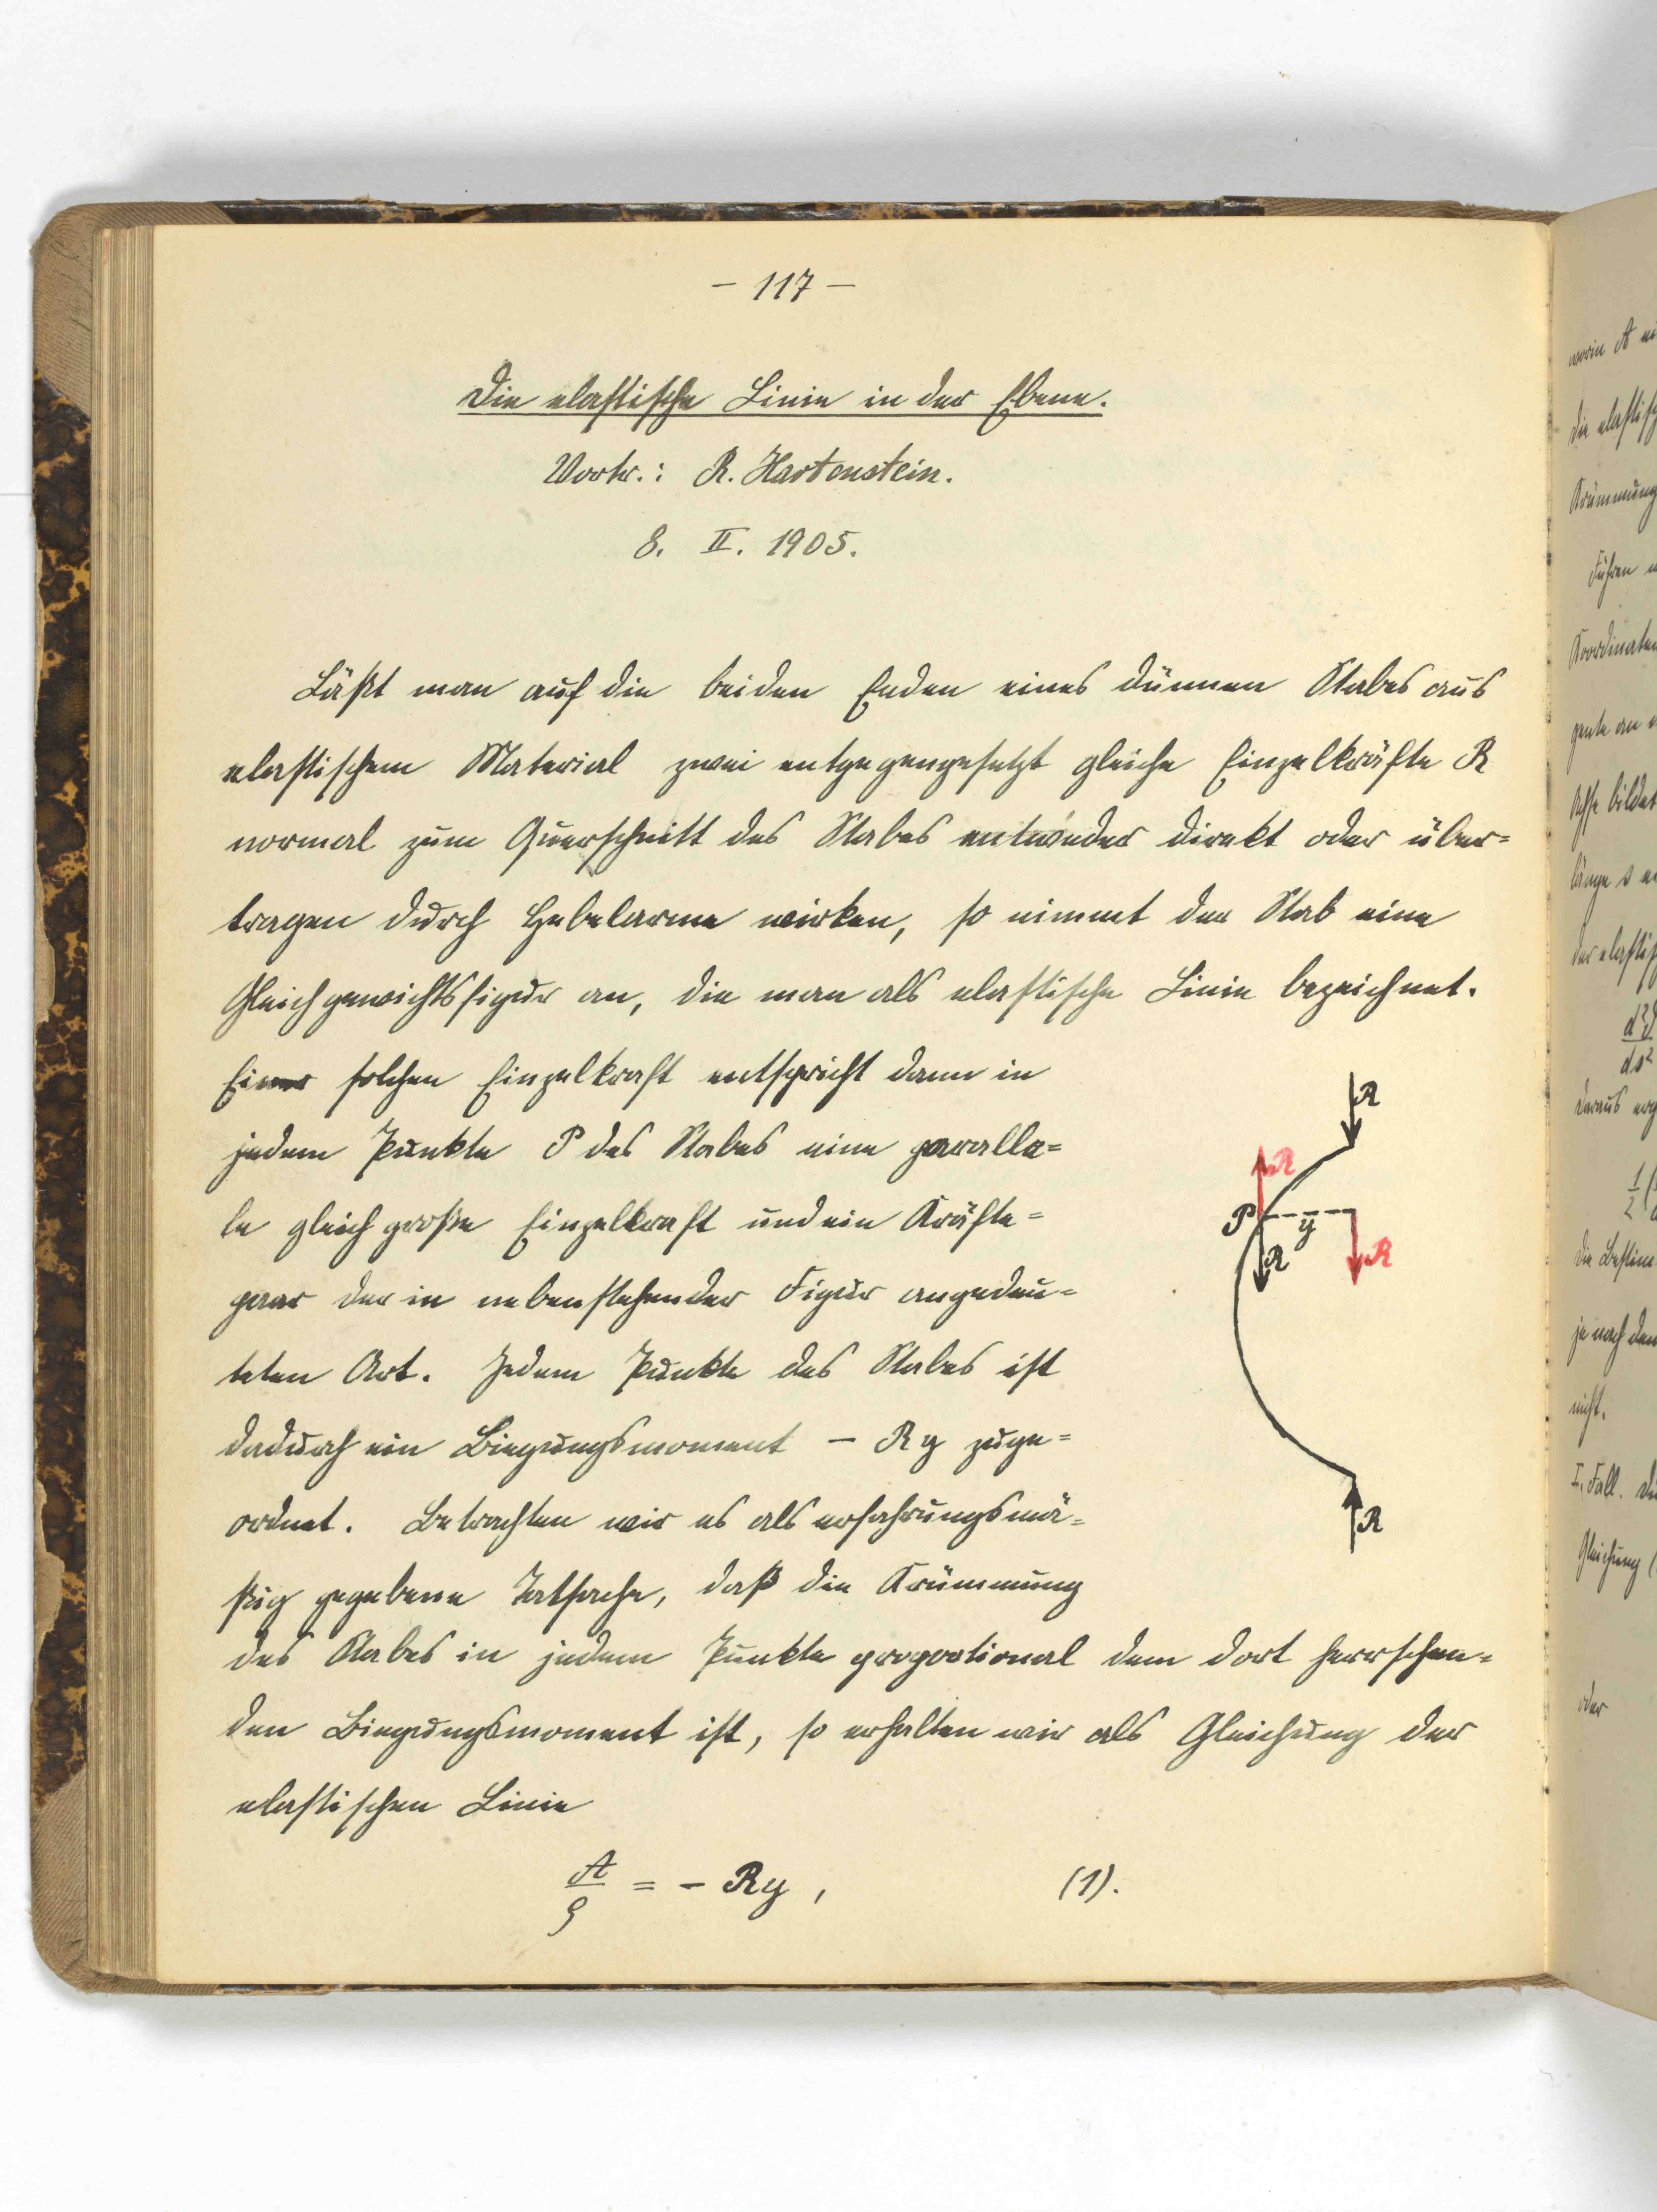 – 117 –
Die elastische Linie in der Ebene.
Vortr.: R. Hartenstein.
8. II. 1905.
Läßt man auf die beiden Enden eines dünnen Stabes aus
elastischem Material zwei entgegengesetzt gleiche Einzelkräfte R
normal zum Querschnitt des Stabes entweder direkt oder über=
tragen durch Hebelarme wirken, so nimmt der Stab eine
Gleichgewichtsfigur an, die man als elastische Linie bezeichnet.
Einer solchen Einzelkraft entspricht dann in
jedem Punkte P des Stabes eine paralle=
le gleich große Einzelkraft und ein Kräfte=
paar der in nebenstehender Figur angedeu=
teten Art. Jedem Punkte des Stabes ist
dadurch ein Biegungsmoment – Ry zuge=
ordnet. Betrachten wir es als erfahrungsmä=
ßig gegebene Tatsache, daß die Krümmung
des Stabes in jedem Punkte proportional dem dort herrschen=
den Biegungsmoment ist, so erhalten wir als Gleichung der
elastischen Linie
A/ρ = – Ry , (1).
R
R
P
y
R
R
R
worin A
die elastisch
Krümmung
Führen
Koordinaten
gente an
Achse bildet
länge s
der elastisch
d²ϑ
ds²
daraus erg
1/2 (
die Bestimm
je nach dem
nicht.
I. Fall. Di
Gleichung (
oder